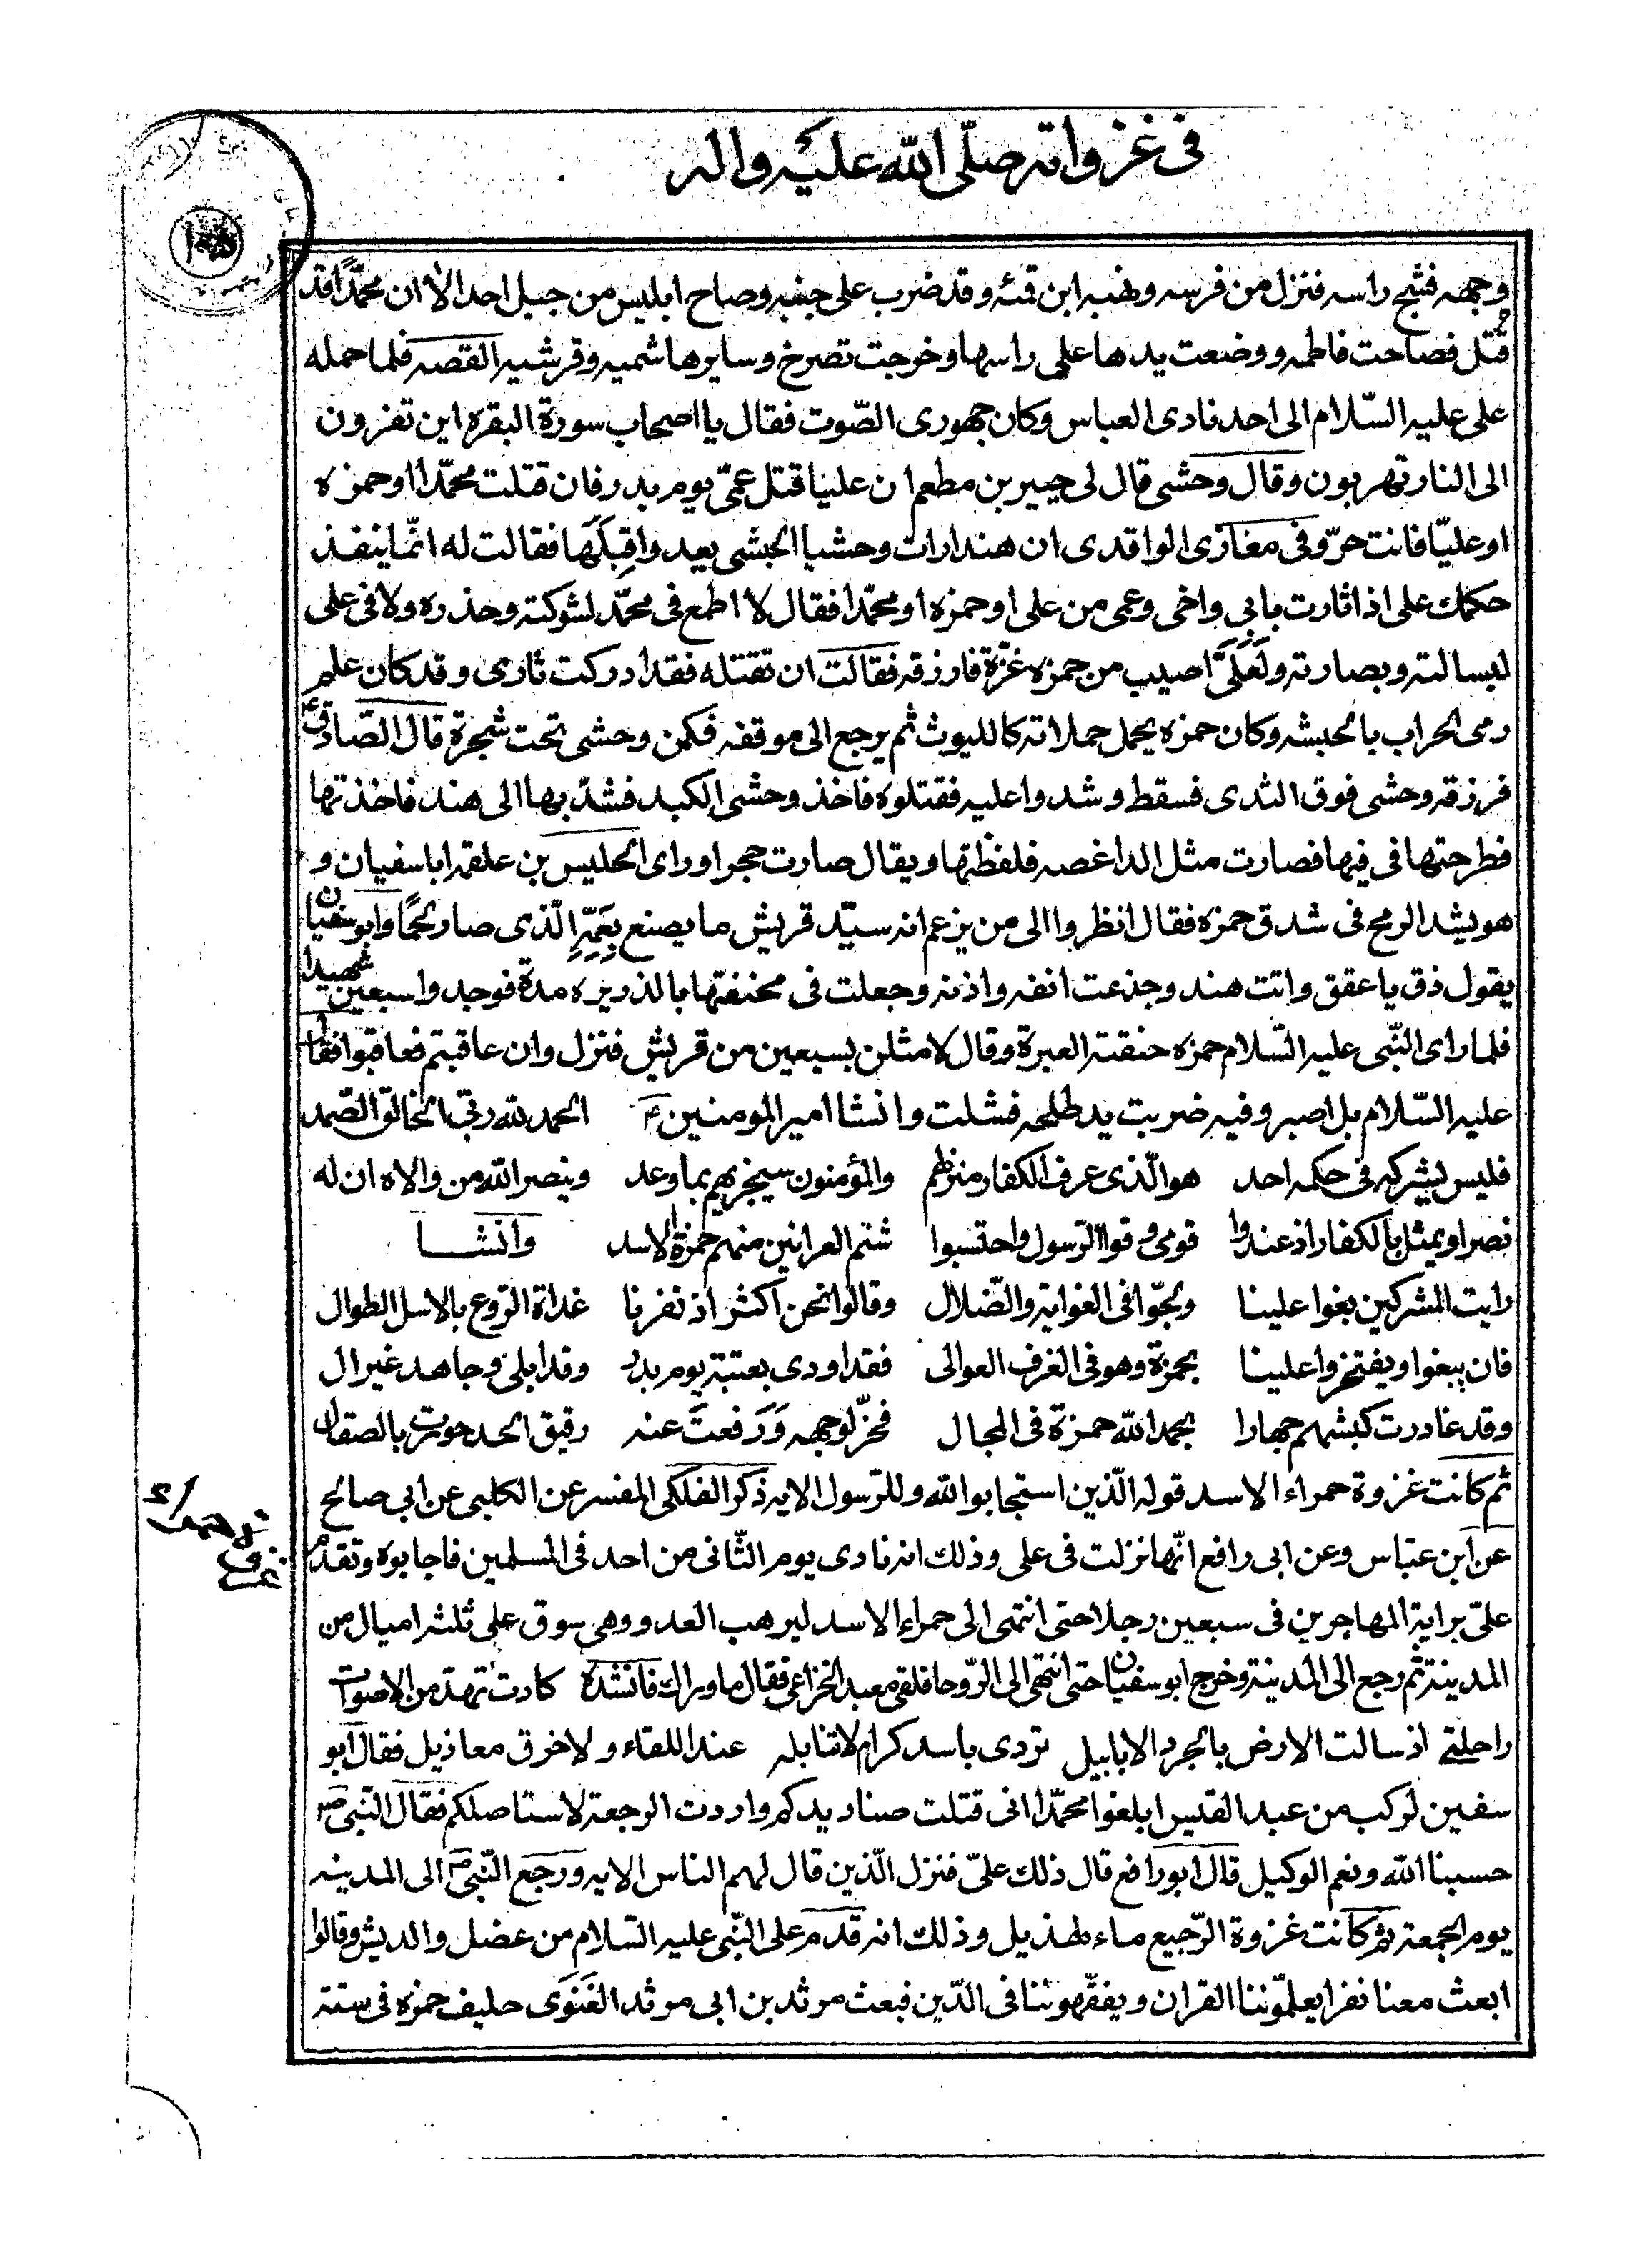 فى غزواته صلّى الله عليه واله
وجهه فشج راسه فنزل من فرسه ونهبه ابن قمئه وقد ضرب على جنبه وصاح ابليس من جبل احد الا ان محمّدًا قد
قتل فصاحت فاطمه ووضعت يدها على راسها وخرجت تصرخ وساير هاشميه وقرشيه القصه فلما حمله
على عليه السّلام الى احد نادى العباس وكان جهورى الصّوت فقال يا اصحاب سورة البقره اين تفرون
الى النار تهربون وقال وحشى قال لى جبير بن مطعم ان عليا قتل عمّى يوم بدر فان قتلت محمّدا او حمزه
او عليّا فانت حرّ وفى مغازى الواقدى ان هندا رات وحشيا الحبشى يعدوا قِبلَهَا فقالت له انّما ينفذ
حكمك على اذا ثارت بابى واخى وعمى من على او حمزه او محمّدا فقال لا اطمع فى محمّد لشوكته وحذره ولا فى على
لبسالته وبصارته ولَعَلىّ اصيب من حمزه غرّة فارزقه فقالت ان تقتله فقد ادركت ثارى وقد كان علم
رمى الحراب بالحبشه وكان حمزه يحمل حملاته كالليوث ثم يرجع الى موقفه فكمن وحشى تحت شجرة قال الصّادق ع
فرزقه وحشى فوق الثدى فسقط وشدوا عليه فقتلوه فاخذ وحشى الكبد فشدّ بها الى هند فاخذتها
فطرحتها فى فيها فصارت مثل الداغصه فلفظتها ويقال صارت حجرا وراى الحليس بن علقمه ابا سفيان و
هو يشد الرمح فى شدق حمزه فقال انظروا الى من يزعم انه سيّد قريش ما يصنع بِعَمِّهِ الّذى صار لحمًا وابو سفيان
يقول ذق يا عقق وانت هند وجذعت انفه واذنه وجعلت فى مخنقتها بالذريره مدة فوجدوا سبعين شهيدا
فلما راى النّبى عليه السّلام حمزه خنقته العبرة وقال لامثلن بسبعين من قريش فنزل وان عاقبتم فعاقبوا فقال
عليه السّلام بل اصبر وفيه ضربت يد طلحه فشلت وانشا امير المومنين ع الحمد لله ربّى الخالق الصّمد
فليس يشركه فى حكمه احد هو الّذى عرف الكفار منزلهم والمؤمنون سيجزيهم بما وعد وينصر الله من والاه ان له
نصرا ويمثل بالكفار اذ عندوا قومى وقوا الرسول واحتسبوا شم العرانين منهم حمزة الاسد وانشا
رايت المشركين بغوا علينا ولجّوا فى الغواية والضّلال وقالوا نحن اكثر اذ نفرنا غداة الرّوع بالاسل الطوال
فان يبغوا ويفتخروا علينا بحمزة وهو فى الغرف العوالى فقد اودى بعتبة يوم بدر وقد ابلى وجاهد غير ال
وقد غادرت كبشهم جهارا بحمد الله حمزة فى المجال فخرّ لوجهه وَرَفعتَ عنه رقيق الحد حودث بالصقال
ثم كانت غزوة حمراء الاسد قوله الّذين استجابوا لله وللرّسول الايه ذكر الفلكى المفسر عن الكلبى عن ابى صالح
عن ابن عبّاس وعن ابى رافع انّها نزلت فى على وذلك انه نادى يوم الثّانى من احد فى المسلمين فاجابوه وتقدم
علىّ براية المهاجرين فى سبعين رجلا حتى انتهى الى حمراء الاسد ليرهب العدو وهى سوق على ثلثه اميال من
المدينة ثم رجع الى المدينة وخرج ابو سفيان حتى انتهى الى الرّوحا فلقى معبد الخزاعى فقال ما وراك فانشده كادت تهدّ من الاصوات
راحلتى اذ سالت الارض بالجرد الابابيل تردى باسد كرام لا تنابله عند اللقاء ولا خرق معاذيل فقال ابو
سفين لركب من عبد القيس ابلغوا محمّدا انى قتلت صناديدكم واردت الرجعة لاستاصلكم فقال النّبى ص
حسبنا الله ونعم الوكيل قال ابو رافع قال ذلك علىّ فنزل الّذين قال لهم الناس الايه ورجع النّبى ص الى المدينه
يوم الجمعة ثم كانت غزوة الرّجيع ماء لهذيل وذلك انه قدم على النّبى عليه السّلام من عضل والديش وقالوا
ابعث معنا نفرا يعلّموننا القران ويفقّهوننا فى الدّين فبعث مرثد بن ابى مرثد الغَنَوَى حليف حمزه فى ستة